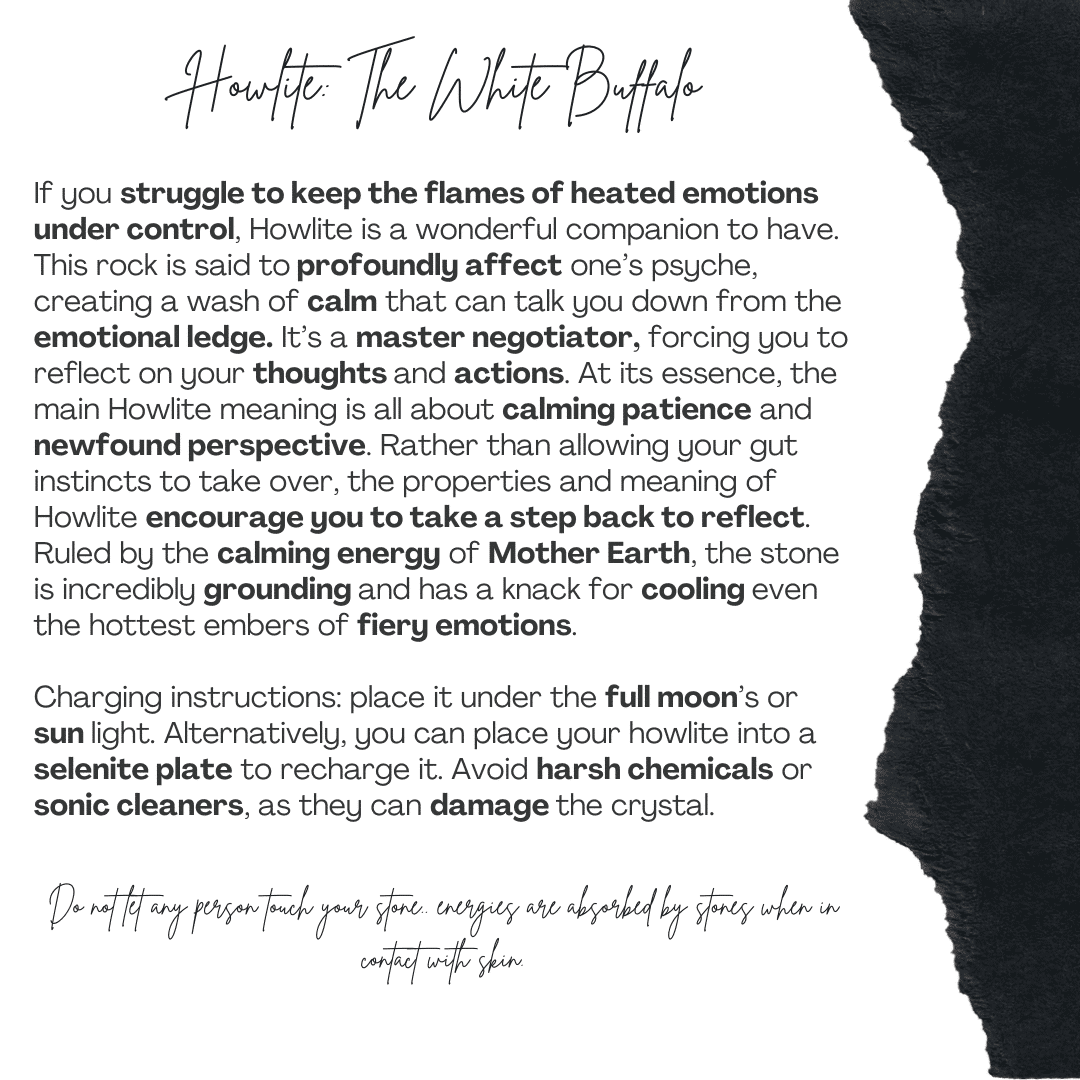 Howlite: The White Buffalo
If you struggle to keep the flames of heated emotions
under control, Howlite is a wonderful companion to have.
This rock is said to profoundly affect one’s psyche,
creating a wash of calm that can talk you down from the
emotional ledge. It’s a master negotiator, forcing you to
reflect on your thoughts and actions. At its essence, the
main Howlite meaning is all about calming patience and
newfound perspective. Rather than allowing your gut
instincts to take over, the properties and meaning of
Howlite encourage you to take a step back to reflect.
Ruled by the calming energy of Mother Earth, the stone
is incredibly grounding and has a knack for cooling even
the hottest embers of fiery emotions.
Charging instructions: place it under the full moon’s or
sun light. Alternatively, you can place your howlite into a
selenite plate to recharge it. Avoid harsh chemicals or
sonic cleaners, as they can damage the crystal.
Do not let any person touch your stone.. energies are absorbed by stones when in
contact with skin.